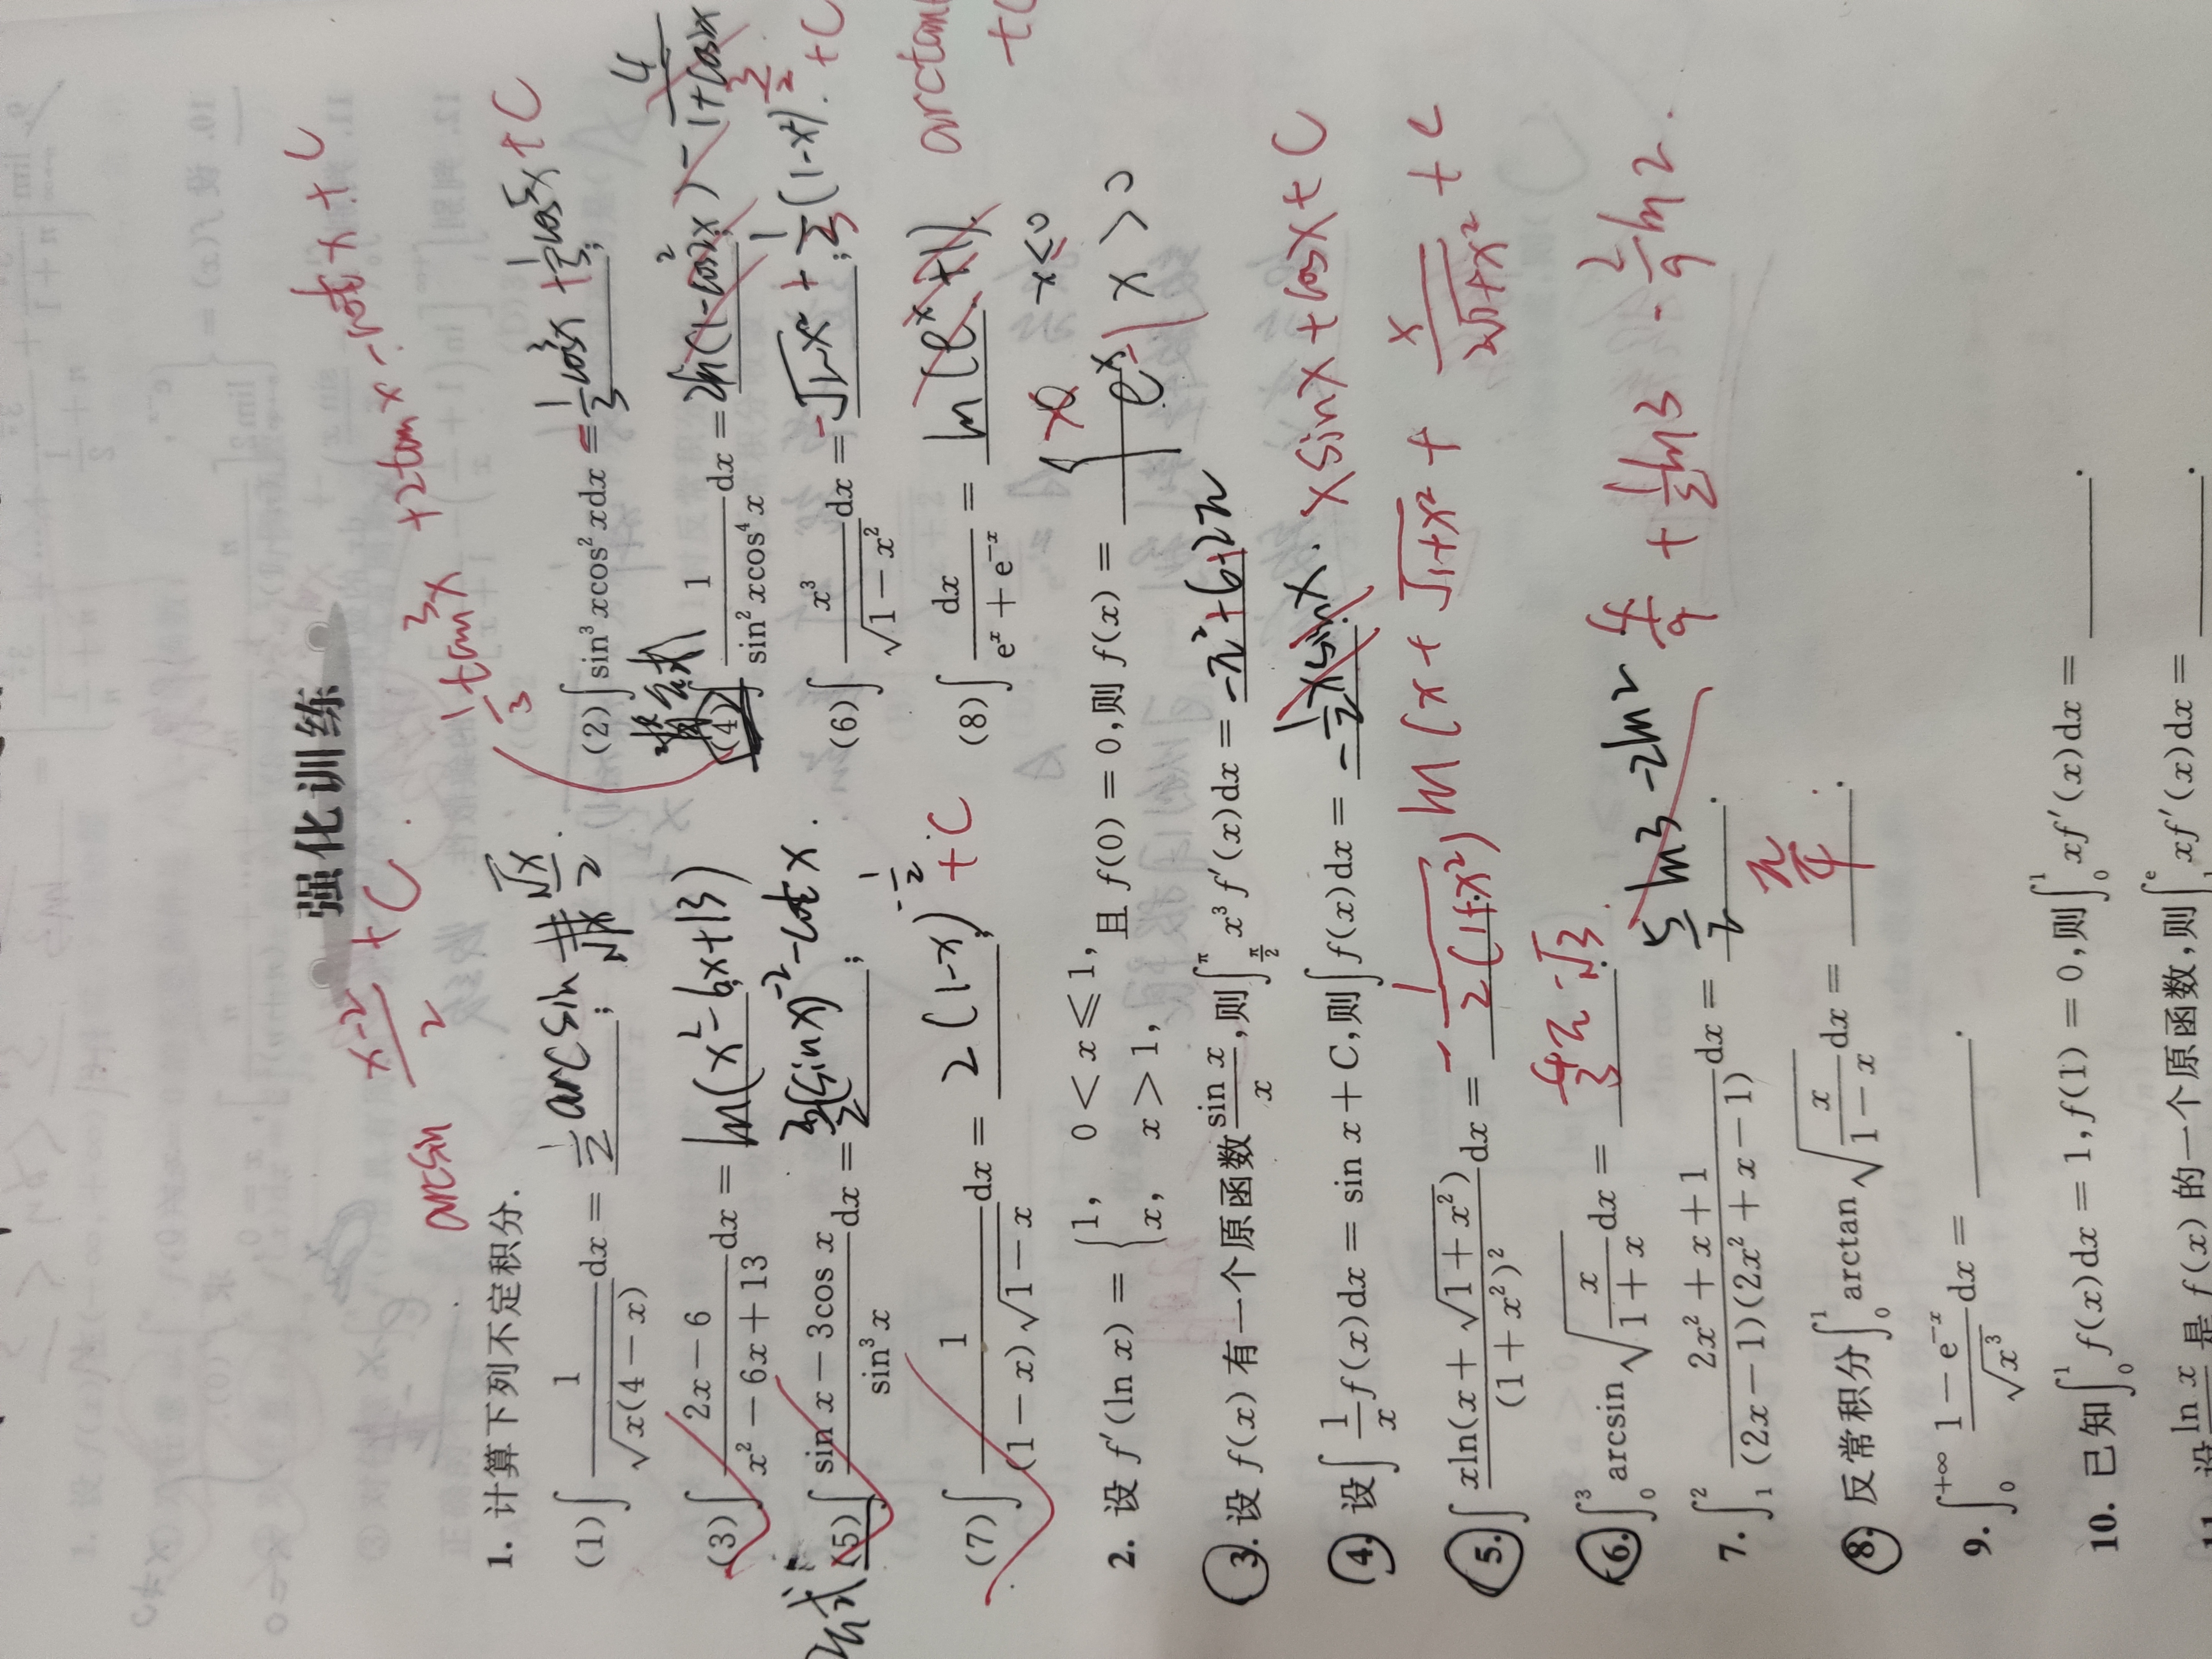 强化训练
arcsin (x-2)/2 + C
1/3 tan³x + 2tanx - cotx + C
1. 计算下列不定积分.
(1) ∫ 1/√(x(4-x)) dx = 1/2 arcsin √x/2 ;
(2) ∫ sin³xcos²xdx = -1/3 cos³x + 1/5 cos⁵x + C ;
背公式
(3) ∫ (2x-6)/(x²-6x+13) dx = ln(x²-6x+13) ;
(4) ∫ 1/(sin²xcos⁴x) dx = 2ln(1-cos²2x) - 4/(1+cos2x) ;
公式
(5) ∫ (sin x-3cos x)/sin³x dx = 3/2 (sinx)⁻² - cotx. ;
(6) ∫ x³/√(1-x²) dx = -√(1-x²) + 1/3 (1-x²)^(3/2) + C ;
(7) ∫ 1/((1-x)√(1-x)) dx = 2(1-x)^(-1/2) + C ;
(8) ∫ dx/(eˣ+e⁻ˣ) = ln(eˣ+1). arctan
2. 设 f′(ln x) = { 1, 0<x≤1, x, x>1, 且 f(0)=0,则 f(x) = { x x≤0 eˣ-1 x>0
3. 设 f(x) 有一个原函数 sin x/x ,则 ∫_{π/2}^{π} x³f′(x)dx = -π²+6+2π
4. 设 ∫ 1/x f(x)dx = sin x+C,则 ∫ f(x)dx = -1/2 x sinx. x sinx + cosx + C
5. ∫ xln(x+√(1+x²))/(1+x²)² dx = -1/(2(1+x²)) ln(x+√(1+x²) + x/(2√(1+x²)) + C
6. ∫_0^3 arcsin √(x/(1+x)) dx = 4/3 π - √3.
7. ∫_1^2 (2x²+x+1)/((2x-1)(2x²+x-1)) dx = 5/2 ln3 - 2ln2 4/9 + 1/2 ln3 - 2/9 ln2.
8. 反常积分 ∫_0^1 arctan √(x/(1-x)) dx = π/4 .
9. ∫_0^{+∞} (1-e⁻ˣ)/√x³ dx = ______.
10. 已知 ∫_0^1 f(x)dx = 1,f(1) = 0,则 ∫_0^1 xf′(x)dx = ______.
11. 设 ln x 是 f(x) 的一个原函数,则 ∫^e xf′(x)dx = ______.